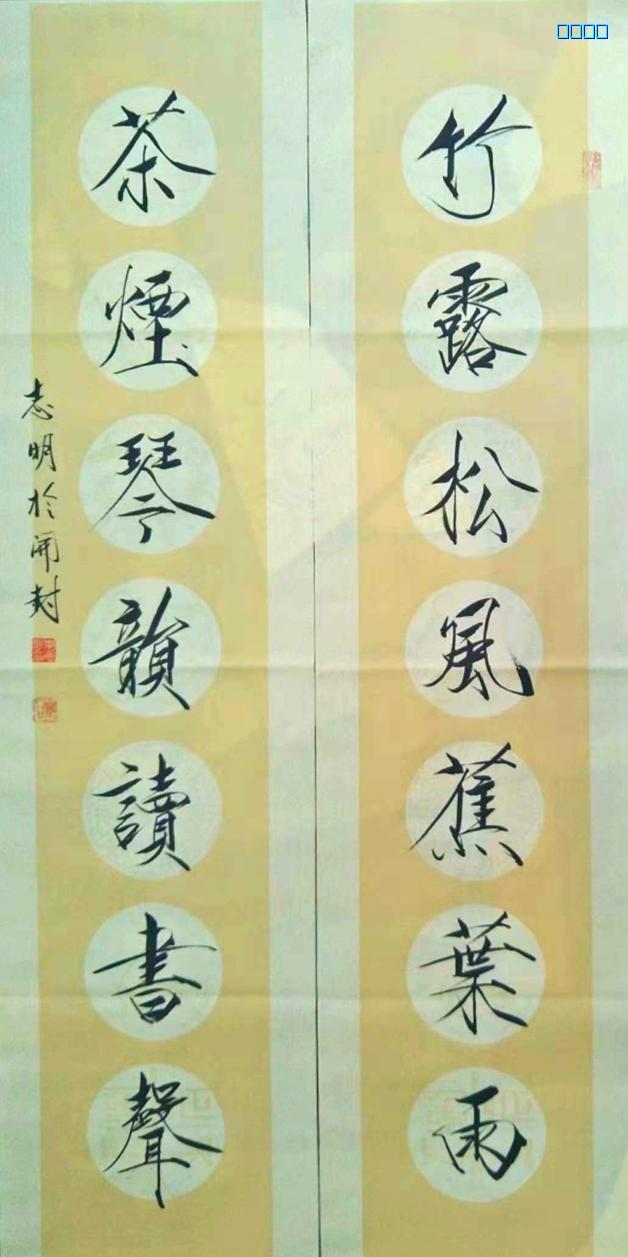 竹露松風蕉葉雨
茶煙琴韻讀書聲
志明於開封